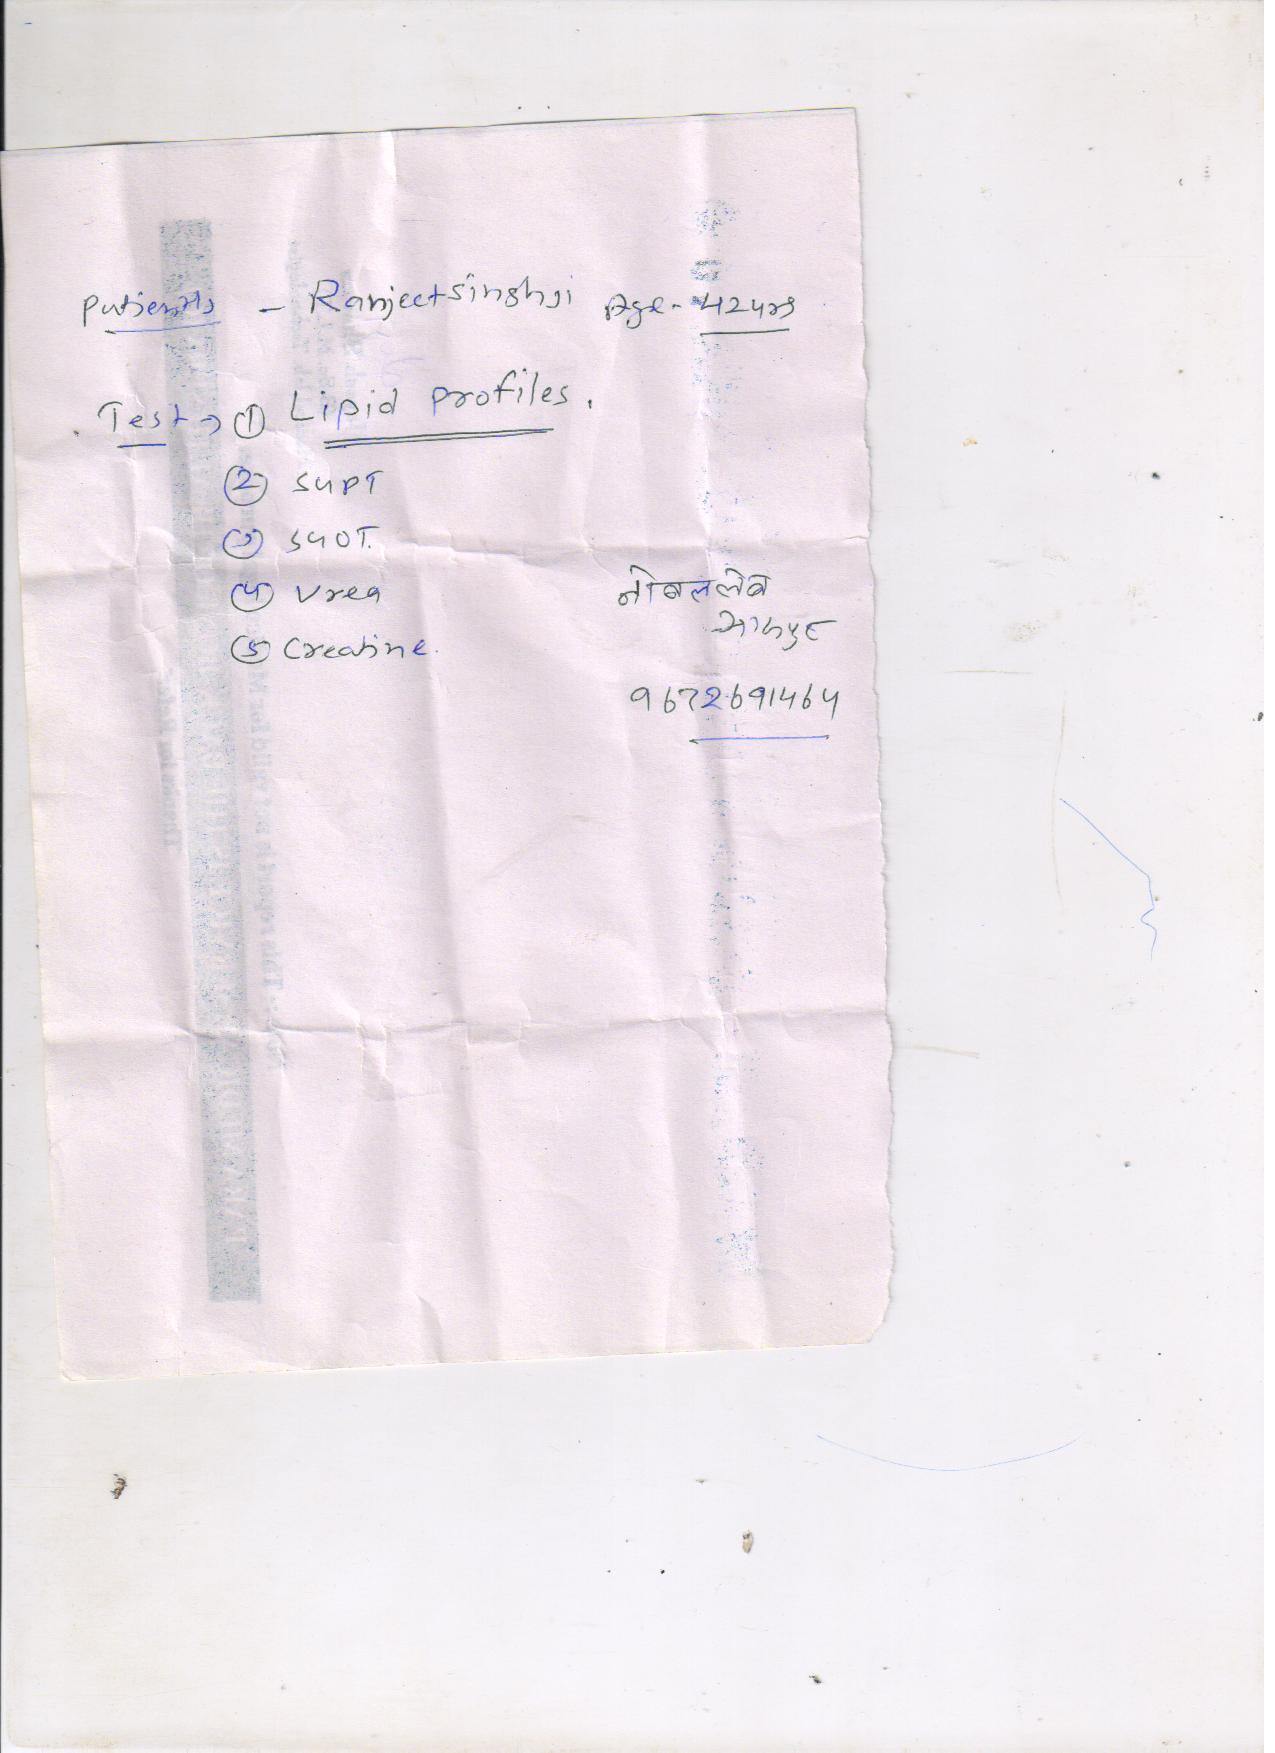 Patients - Ranjeetsinghji Age - 42yrs
Test → ① Lipid profiles.
② SGPT
③ SGOT.
④ Urea
⑤ Creatine.
नोबल लेब
9672691464